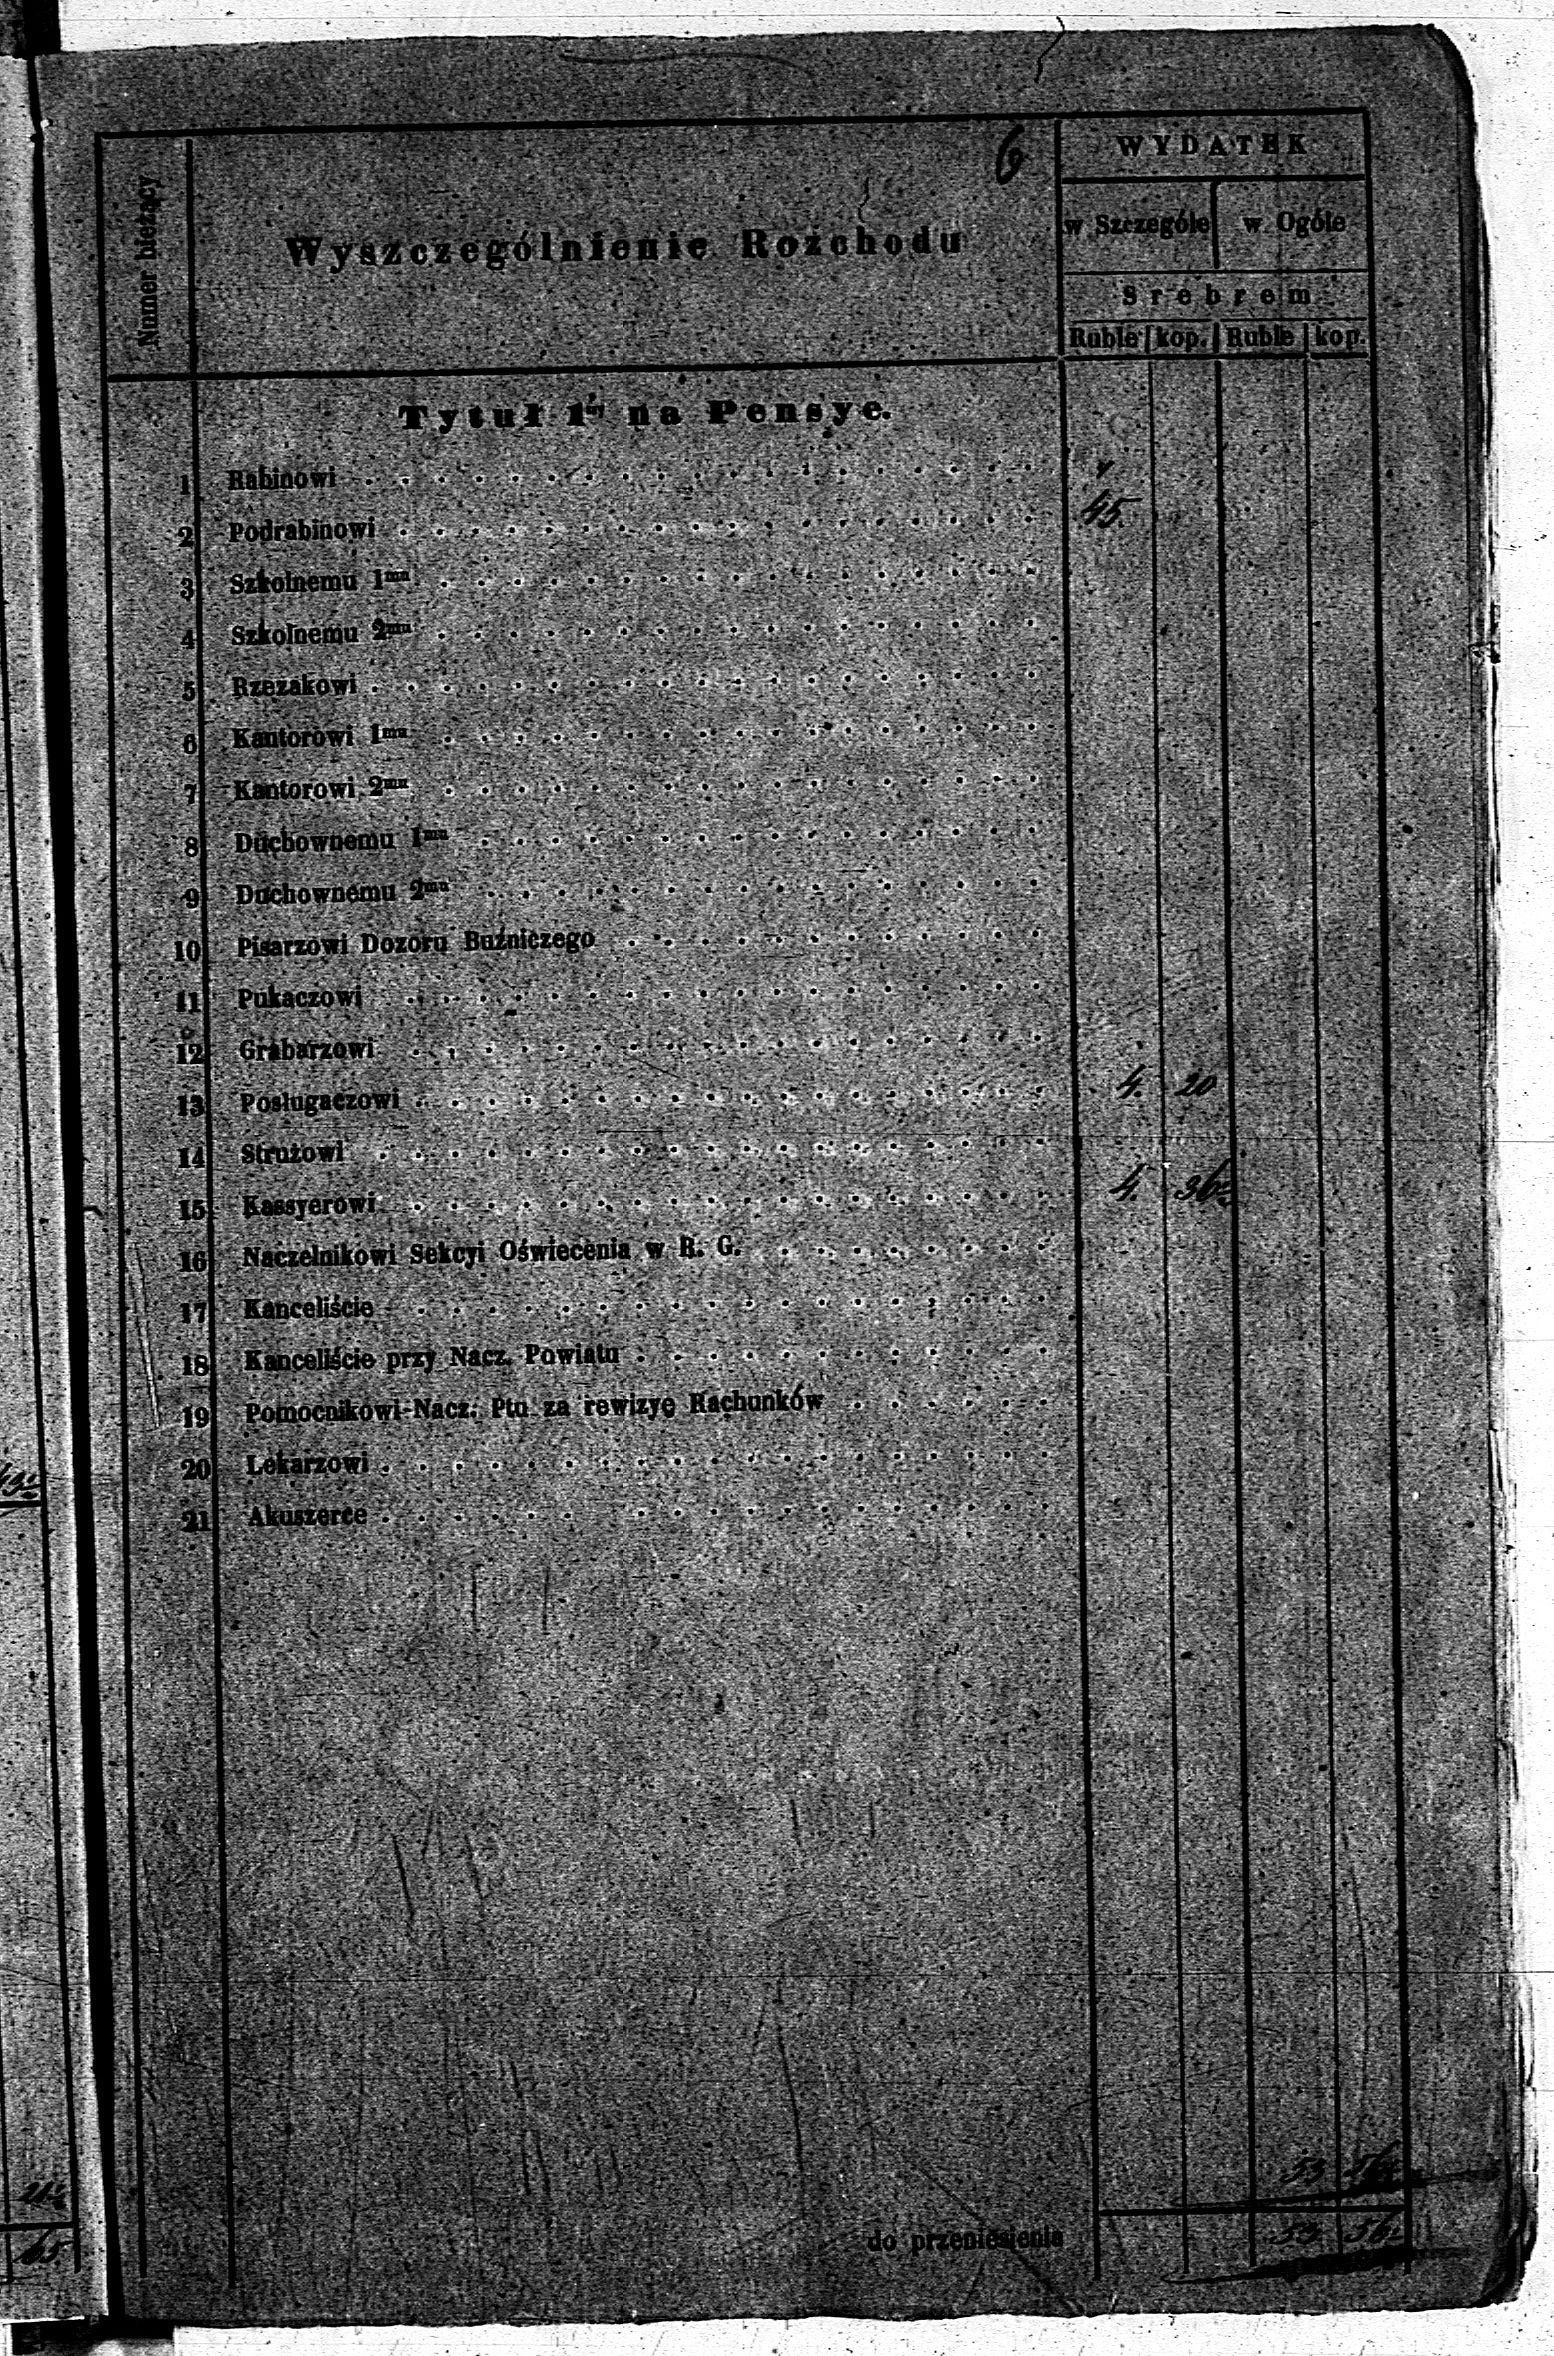 6
Numer bieżący
Wyszczególnienie Rozchodu
WYDATEK
w Szczególe
w Ogóle
Srebrem
Ruble kop. Ruble kop.
Tytuł 1ny na Pensye.
1 Rabinowi
2 Podrabinowi 45.
3 Szkolnemu 1mu
4 Szkolnemu 2mu
5 Rzezakowi
6 Kantorowi 1mu
7 Kantorowi 2mu
8 Duchownemu 1mu
9 Duchownemu 2mu
10 Pisarzowi Dozoru Bużniczego
11 Pukaczowi
12 Grabarzowi
13 Posługaczowi 4. 20
14 Strużowi
15 Kassyerowi 4. 36
16 Naczelnikowi Sekcyi Oświecenia w R. G.
17 Kanceliście
18 Kanceliście przy Nacz. Powiatu
19 Pomocnikowi Nacz. Ptu za rewizyę Rachunków
20 Lekarzowi
21 Akuszerce
53 56
do przeniesienia 53 56